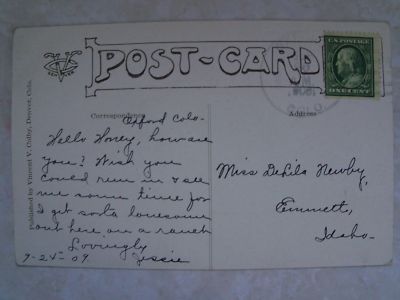 POST-CARD
U.S. POSTAGE
ONE CENT
COLO.
Published by Vincent V. Colby, Denver, Colo.
Correspondence
Address
Oxford Colo-
Hello Honey, how are
you? Wish you
could run in & see
me some time for
I get sorta lonesome
out here on a ranch
Lovingly
7-24-09 Jessie
Miss DeLila Newby,
Emmett,
Idaho-